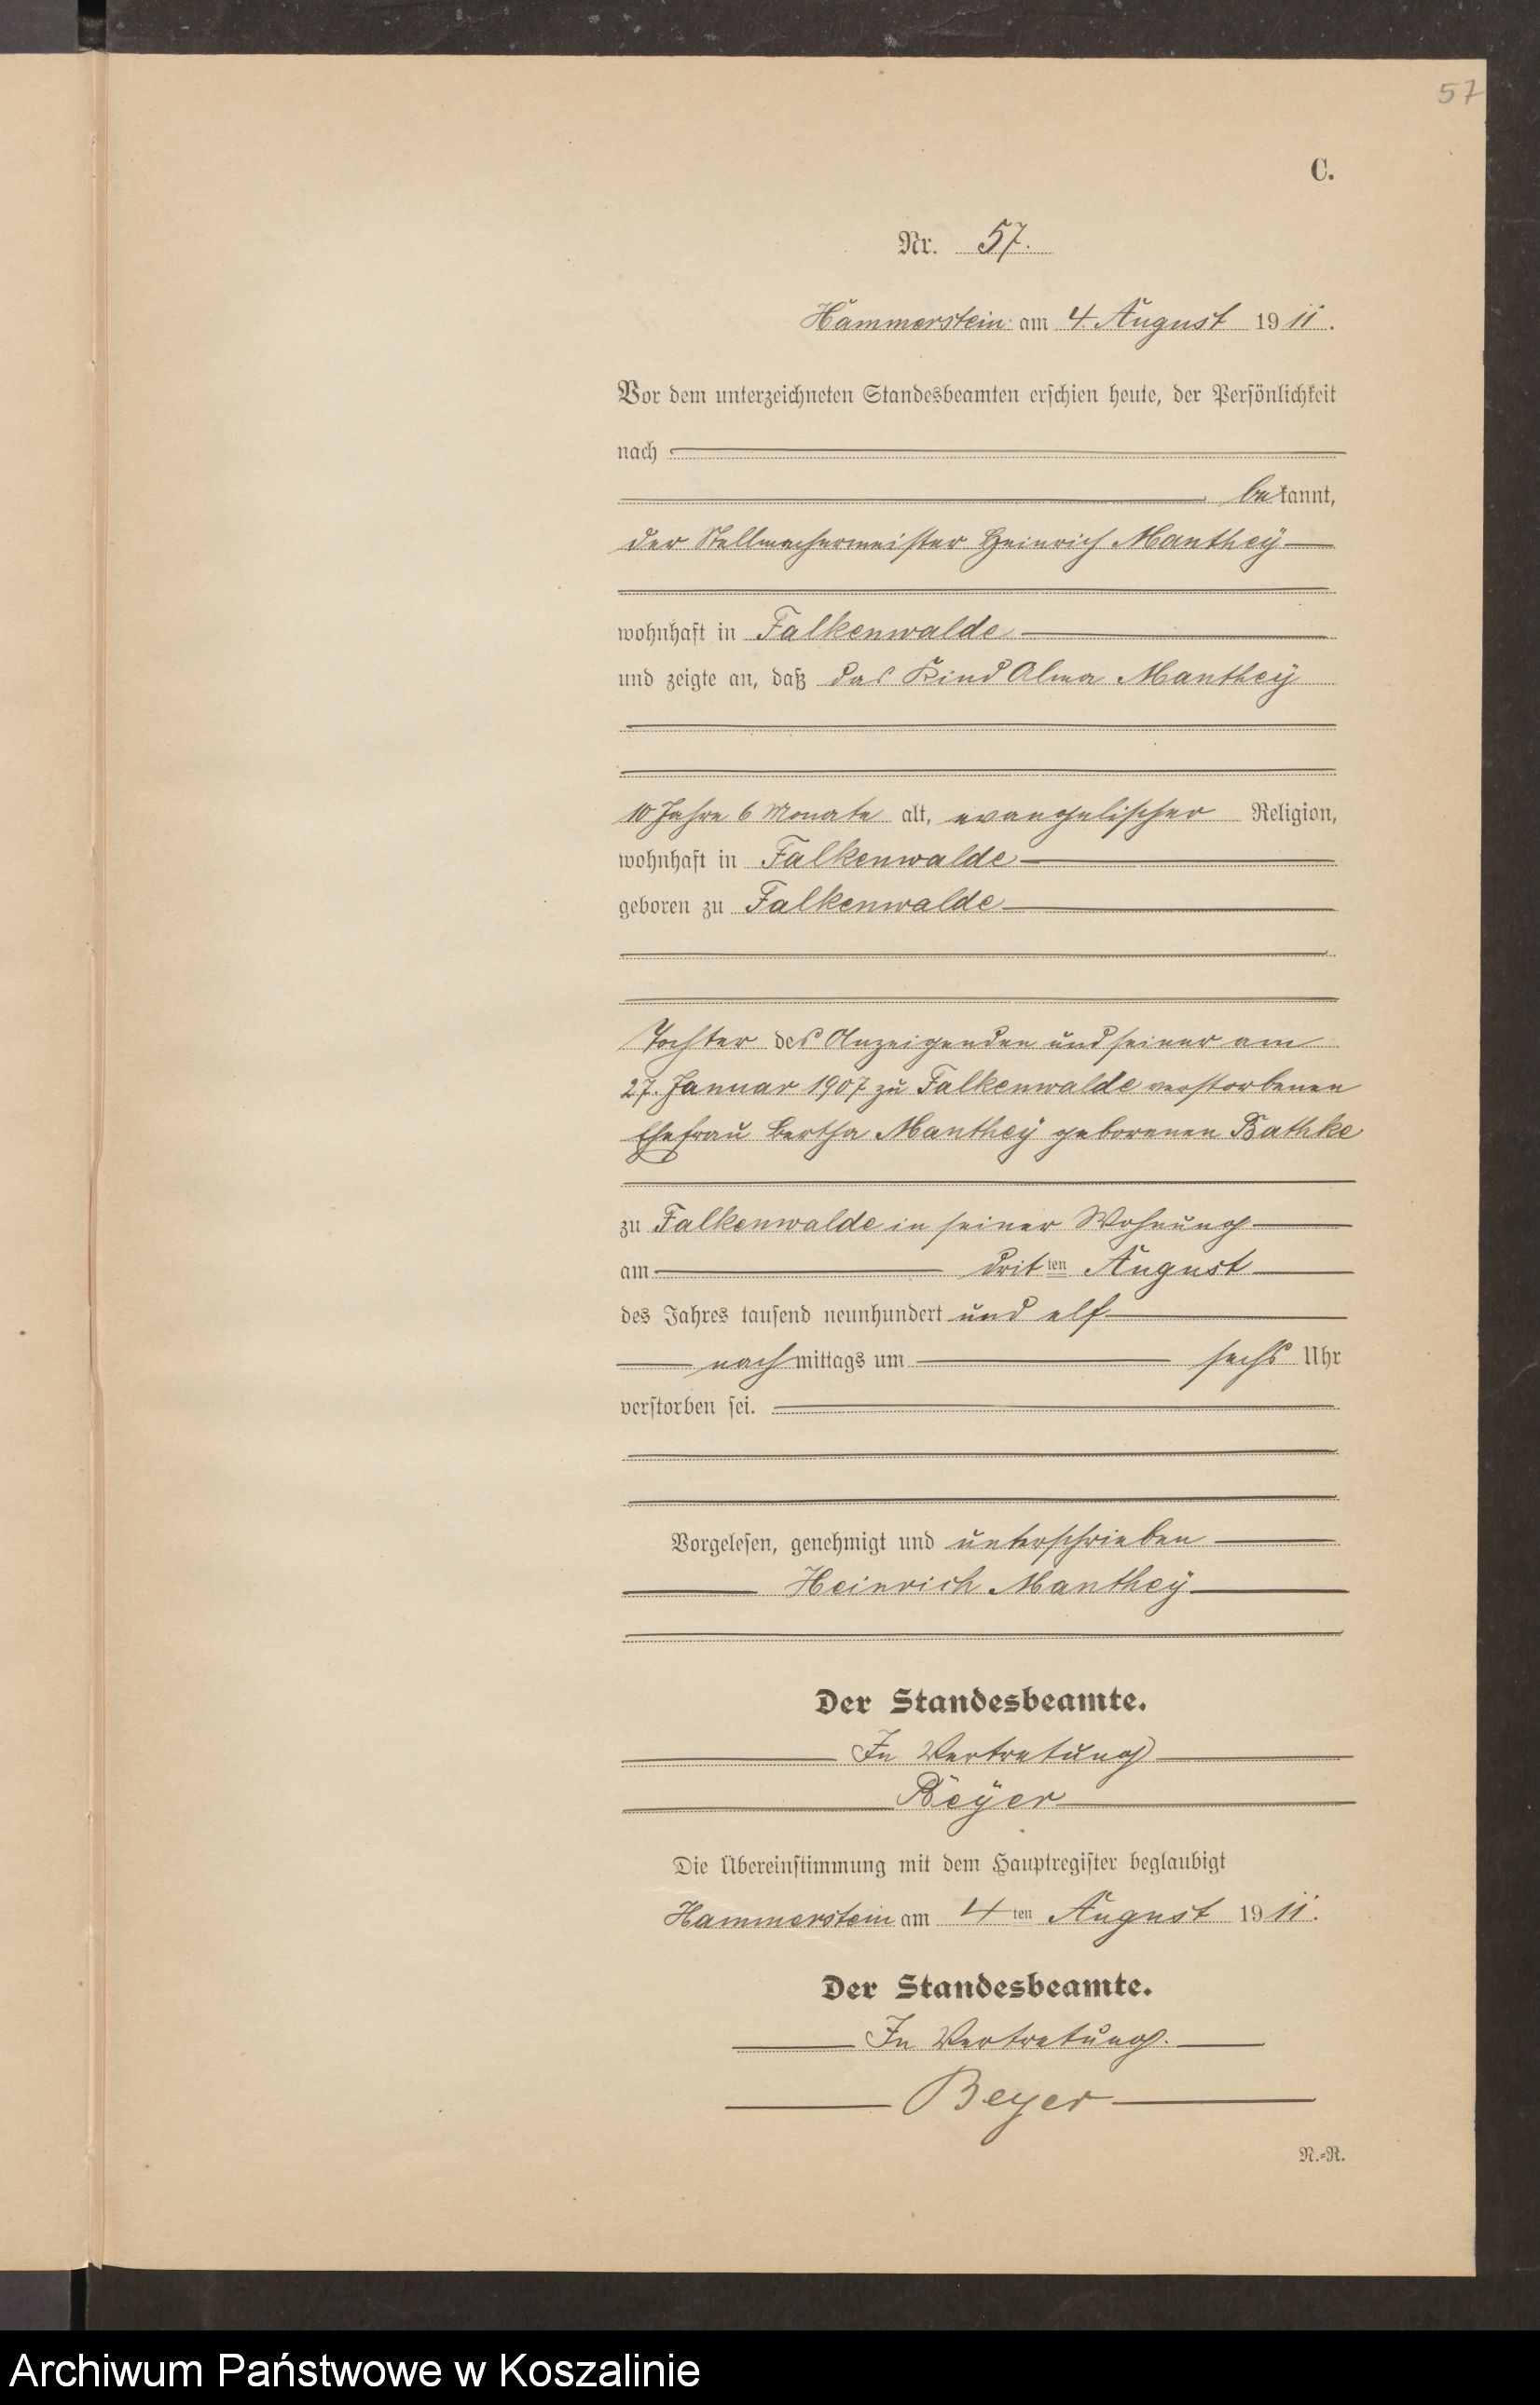 57
C.
Nr. 57.
Hammerstein am 4. August 1911.
Vor dem unterzeichneten Standesbeamten erschien heute, der Persönlichkeit
nach
bekannt,
der Stellmachermeister Heinrich Manthey
wohnhaft in Falkenwalde
und zeigte an, daß das Kind Alma Manthey
10 Jahre 6 Monate alt, evangelischer Religion,
wohnhaft in Falkenwalde
geboren zu Falkenwalde
Tochter des Anzeigenden und seiner am
27. Januar 1907 zu Falkenwalde verstorbenen
Ehefrau Bertha Manthey geborenen Bathke
zu Falkenwalde in seiner Wohnung
am dritten August
des Jahres tausend neunhundert und elf
nachmittags um sechs Uhr
verstorben sei.
Vorgelesen, genehmigt und unterschrieben
Heinrich Manthey
Der Standesbeamte.
In Vertretung
Beyer
Die Übereinstimmung mit dem Hauptregister beglaubigt
Hammerstein am 4ten August 1911.
Der Standesbeamte.
In Vertretung.
Beyer
N.=R.
Archiwum Państwowe w Koszalinie